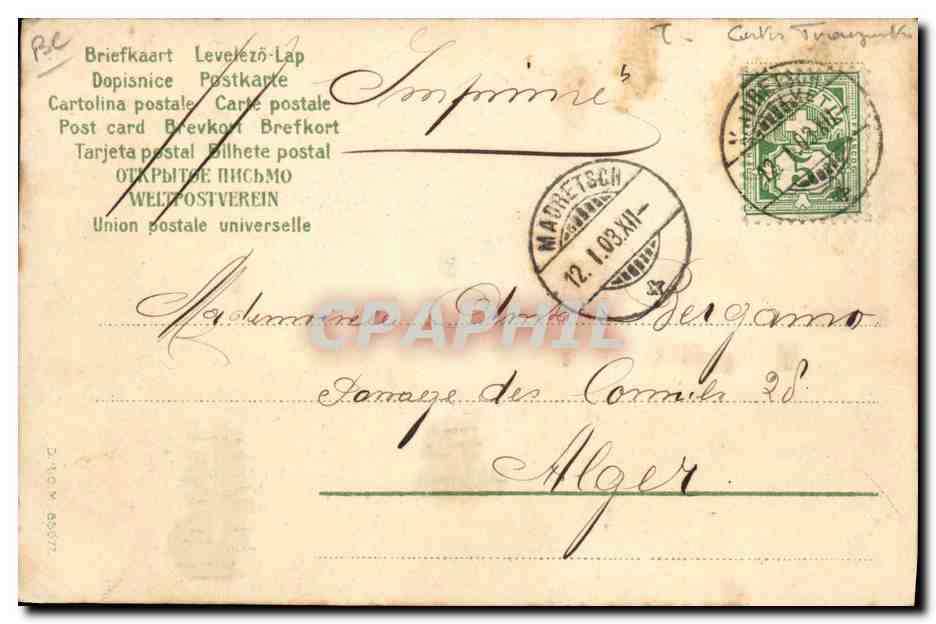 BC
Briefkaart Levelező-Lap
Dopisnice Postkarte
Cartolina postale Carte postale
Post card Brevkort Brefkort
Tarjeta postal Bilhete postal
ОТКРЫТОЕ ПИСЬМО
WELTPOSTVEREIN
Union postale universelle
Imprimé
MADRETSCH
12.I.03.XII-
MADRETSCH
12.I.03.XII-
HELVETIA
5
CPAPHIL
Mademoiselle Bergamo
des 28
Alger